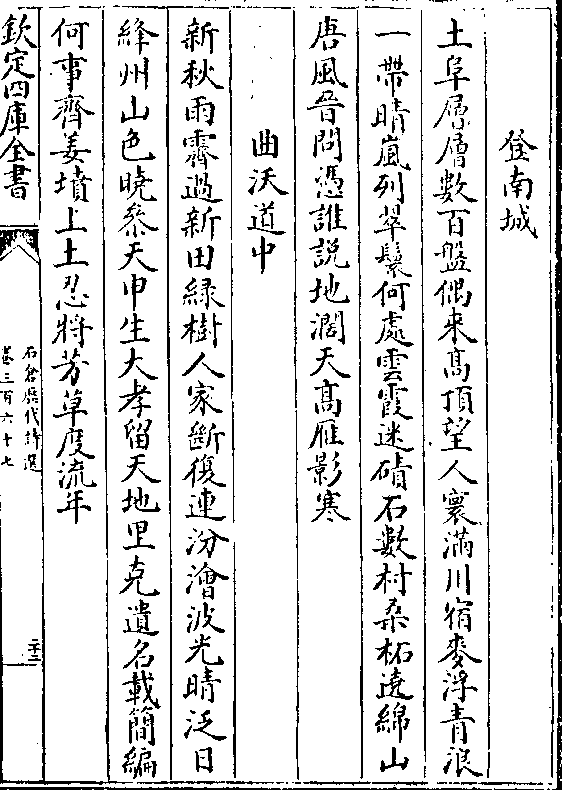 登南城
土阜層層數百盤偶来髙頂望人寰滿川宿麥浮青浪
一帶晴嵐列翠鬟何處雲霞迷磧石數村桑柘遶綿山
唐風晉問憑誰說地濶天髙雁影寒
曲沃道中
新秋雨霽過新田綠樹人家斷復連汾澮波光晴泛日
絳州山色曉叅天申生大孝留天地里克遺名載簡編
何事齊姜墳上土忍將芳草度流年
欽定四庫全書
石倉歷代詩選
卷三百六十七
二十二